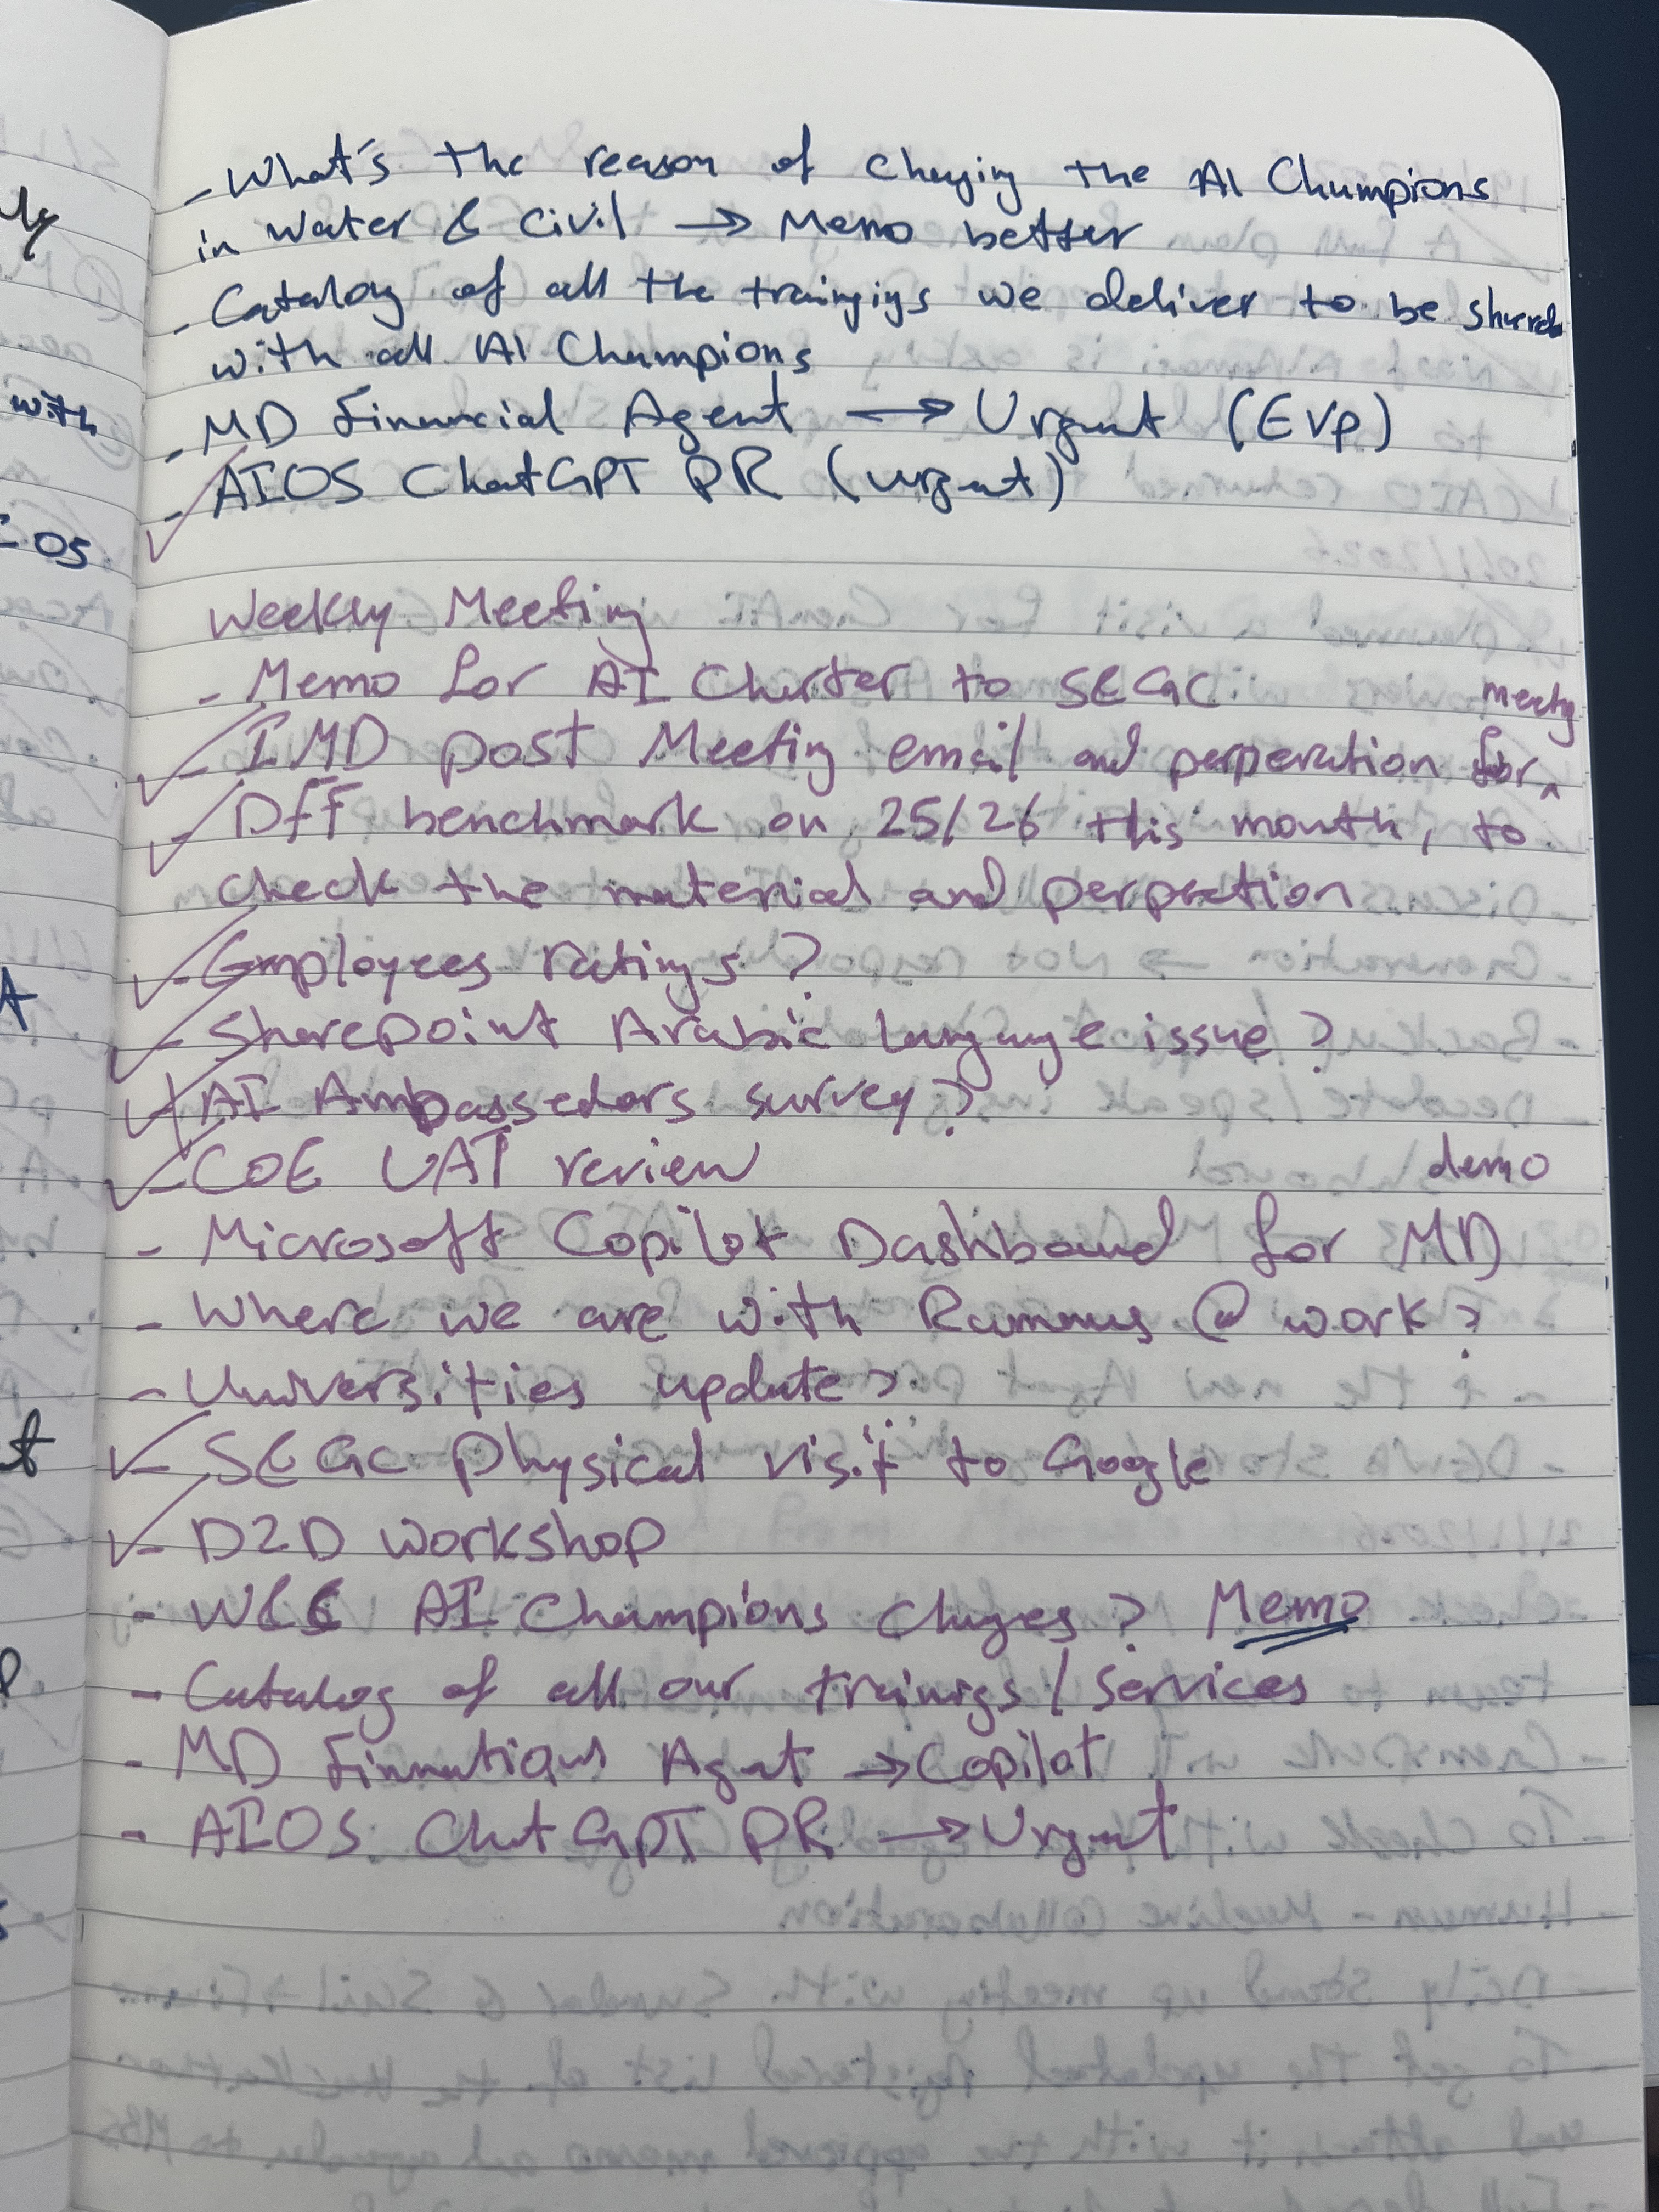 - What's the reason of chenging the AI Champions
in Water & Civil → Memo better
- Catalog of all the trainings we deliver to be shared
with all AI Champions
- MD Financial Agent → Urgent (EVP)
- AIOS ChatGPT PR (urgent)
Weekly Meeting
- Memo for AI Charter to SEGC
- IMD post Meeting email and perperation for meeting
- DFF benchmark on 25/26 this month, to
check the material and perpretion
- Employees ratings?
- Sharepoint Arabic language issue?
- AI Ambassedors survey?
- COE UAT review
- Microsoft Copilot Dashboard for MD demo
- Where we are with Rammas @ work?
- Universities update?
- SEGC physical visit to Google
- D2D workshop
- AI Champions changes? Memo
- Catalog of all our trainings / services
- MD Agent → Copilot
- AIOS ChatGPT PR → Urgent